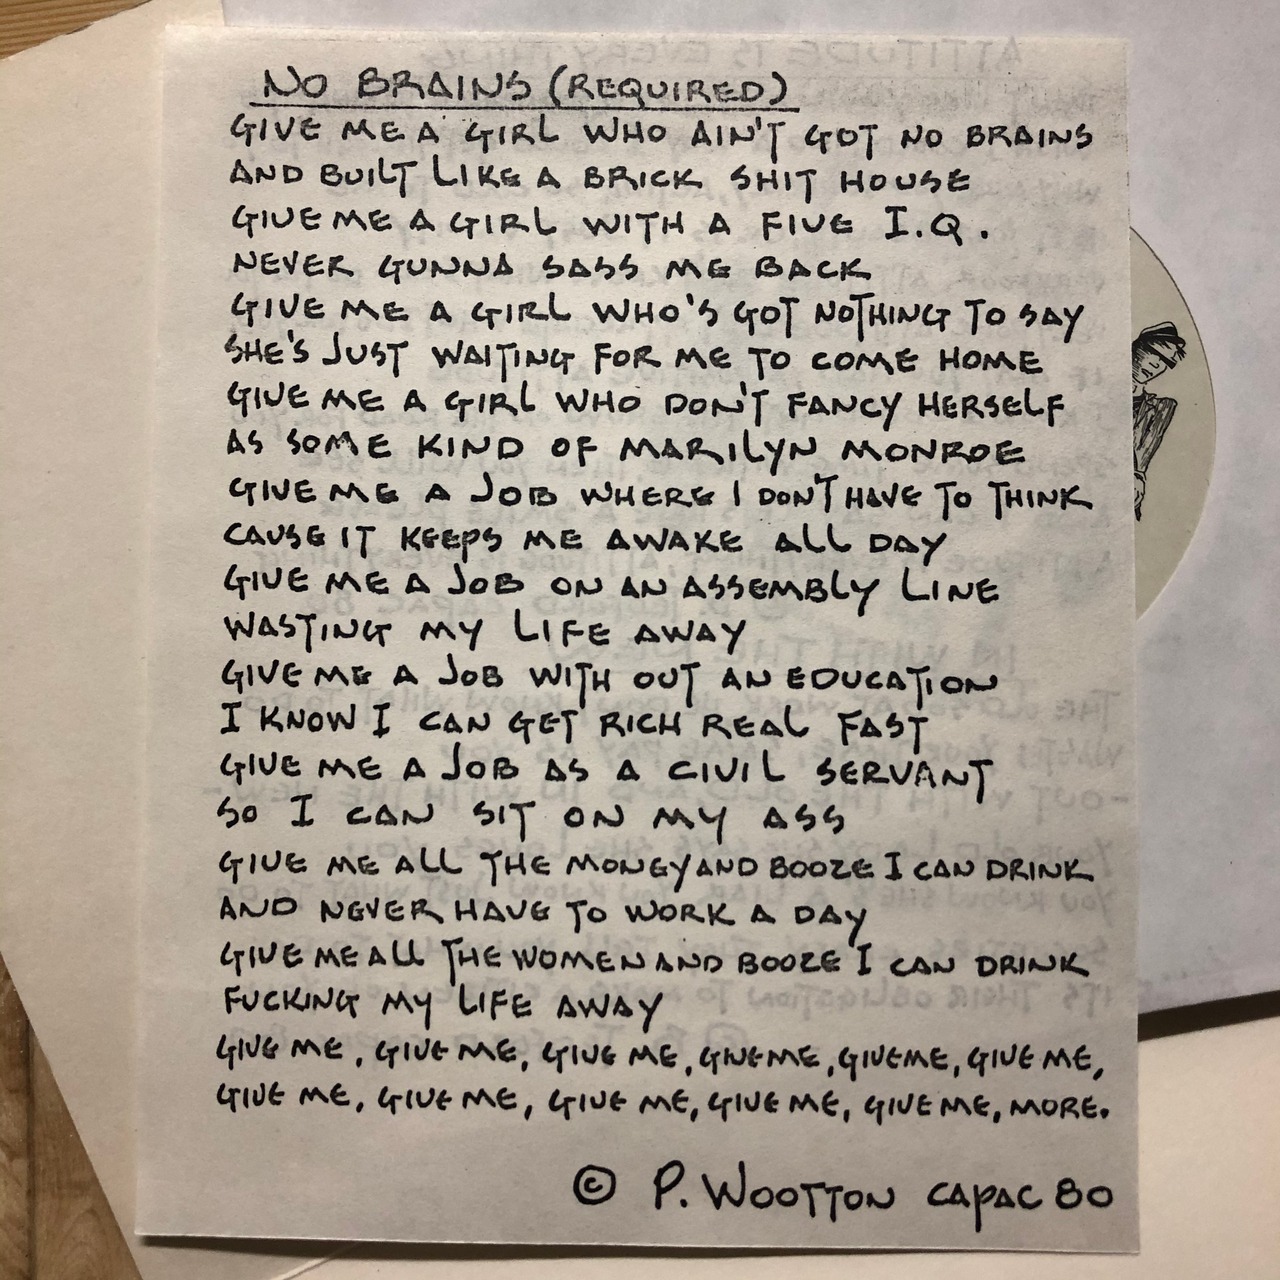 NO BRAINS (REQUIRED)
GIVE ME A GIRL WHO AIN'T GOT NO BRAINS
AND BUILT LIKE A BRICK SHIT HOUSE
GIVE ME A GIRL WITH A FIVE I.Q.
NEVER GUNNA SASS ME BACK
GIVE ME A GIRL WHO'S GOT NOTHING TO SAY
SHE'S JUST WAITING FOR ME TO COME HOME
GIVE ME A GIRL WHO DON'T FANCY HERSELF
AS SOME KIND OF MARILYN MONROE
GIVE ME A JOB WHERE I DON'T HAVE TO THINK
CAUSE IT KEEPS ME AWAKE ALL DAY
GIVE ME A JOB ON AN ASSEMBLY LINE
WASTING MY LIFE AWAY
GIVE ME A JOB WITH OUT AN EDUCATION
I KNOW I CAN GET RICH REAL FAST
GIVE ME A JOB AS A CIVIL SERVANT
SO I CAN SIT ON MY ASS
GIVE ME ALL THE MONEY AND BOOZE I CAN DRINK
AND NEVER HAVE TO WORK A DAY
GIVE ME ALL THE WOMEN AND BOOZE I CAN DRINK
FUCKING MY LIFE AWAY
GIVE ME, GIVE ME, GIVE ME, GIVE ME, GIVE ME, GIVE ME,
GIVE ME, GIVE ME, GIVE ME, GIVE ME, GIVE ME, MORE.
© P. WOOTTON CAPAC 80